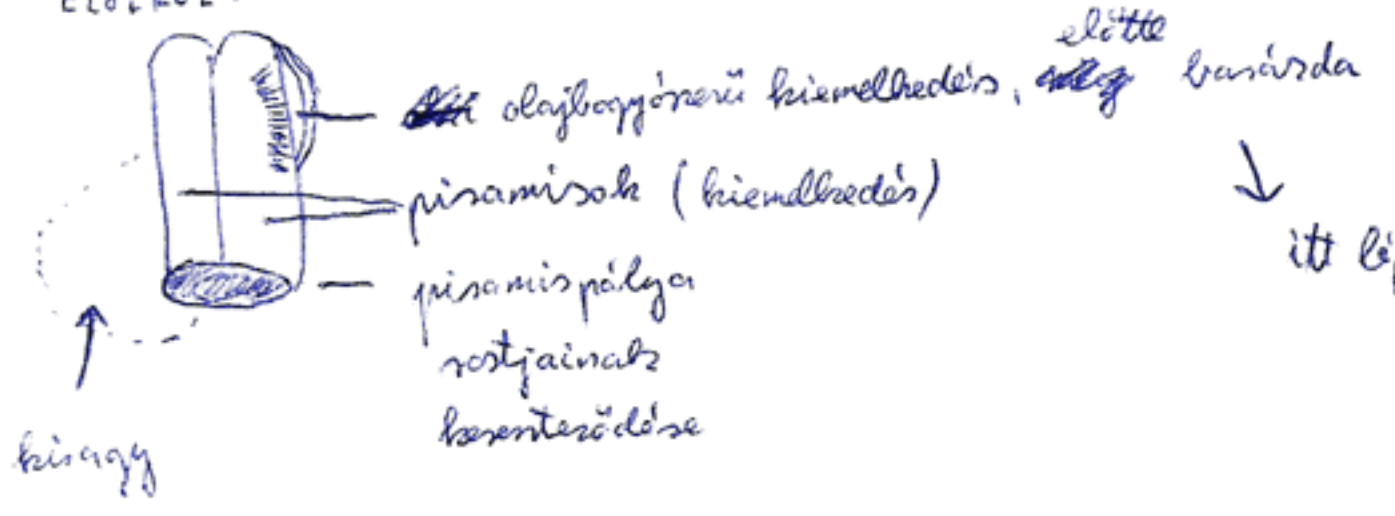 előtte
olajbogyószerű kiemelkedés, barázda
piramisok (kiemelkedés)
itt
piramispálya
rostjainak
kereszteződése
kisagy